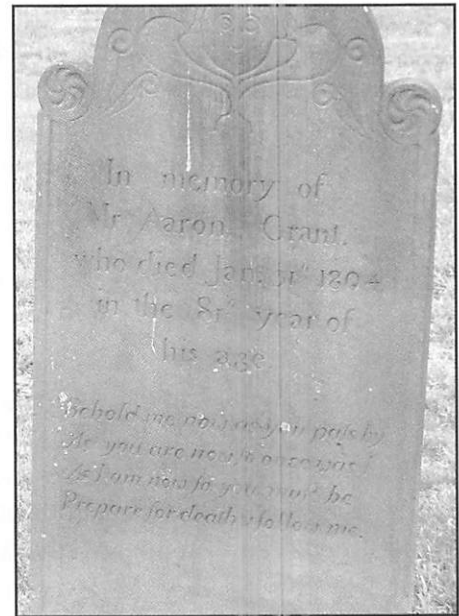 In memory of
Mr Aaron Grant.
who died Jan. 31st 1804
in the 81st year of
his age.
Behold me now as you pass by
As you are now, so once was I
As I am now so you must be
Prepare for death & follow me.